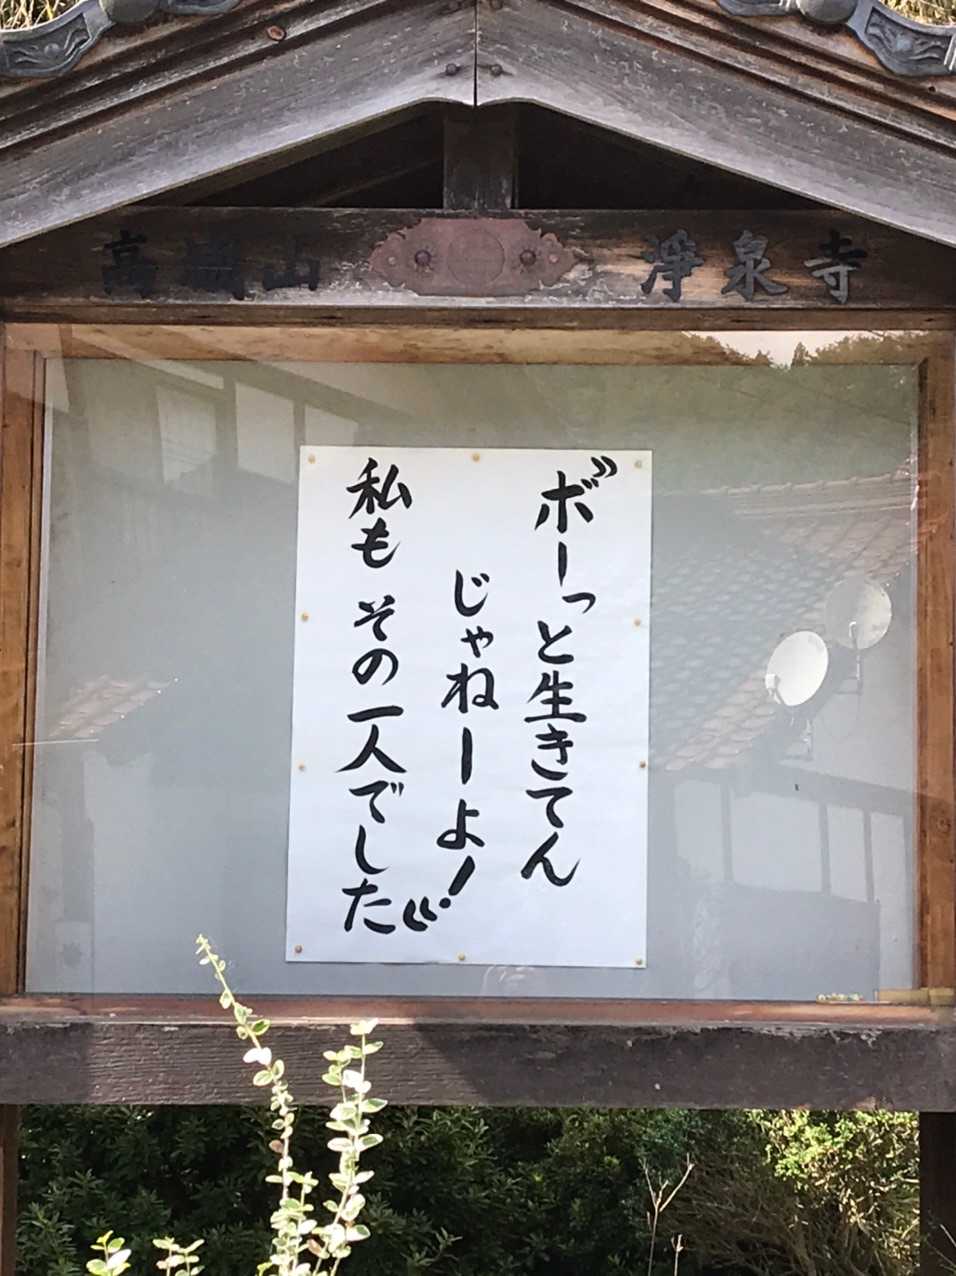 高峴山 淨泉寺
〝ボーっと生きてん
じゃねーよ!〟
私も その一人でした